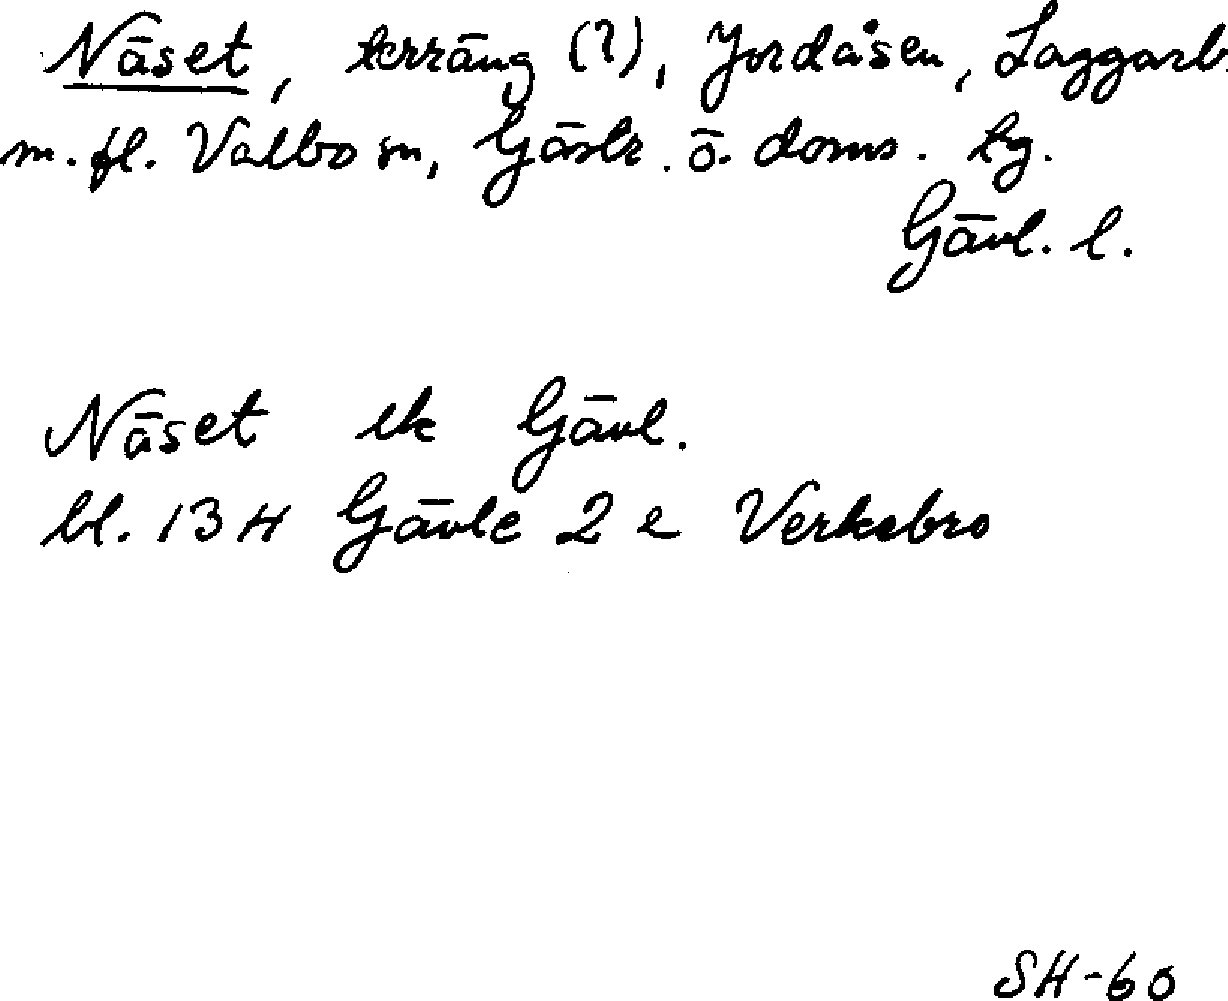 Näset, terräng (?), Jordåsen, Laggarb.
m. fl. Valbo sn, Gästr. ö. doms. tg.
Gävl. l.
Näset ek Gävl.
bl. 13 H Gävle 2 e Verkebro
SH-60